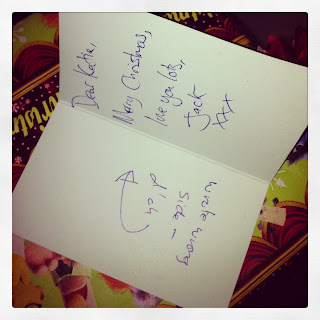 Dear Katie,
Merry Christmas,
love you lots,
Jack
xxx
wrote wrong
side -
d'oh